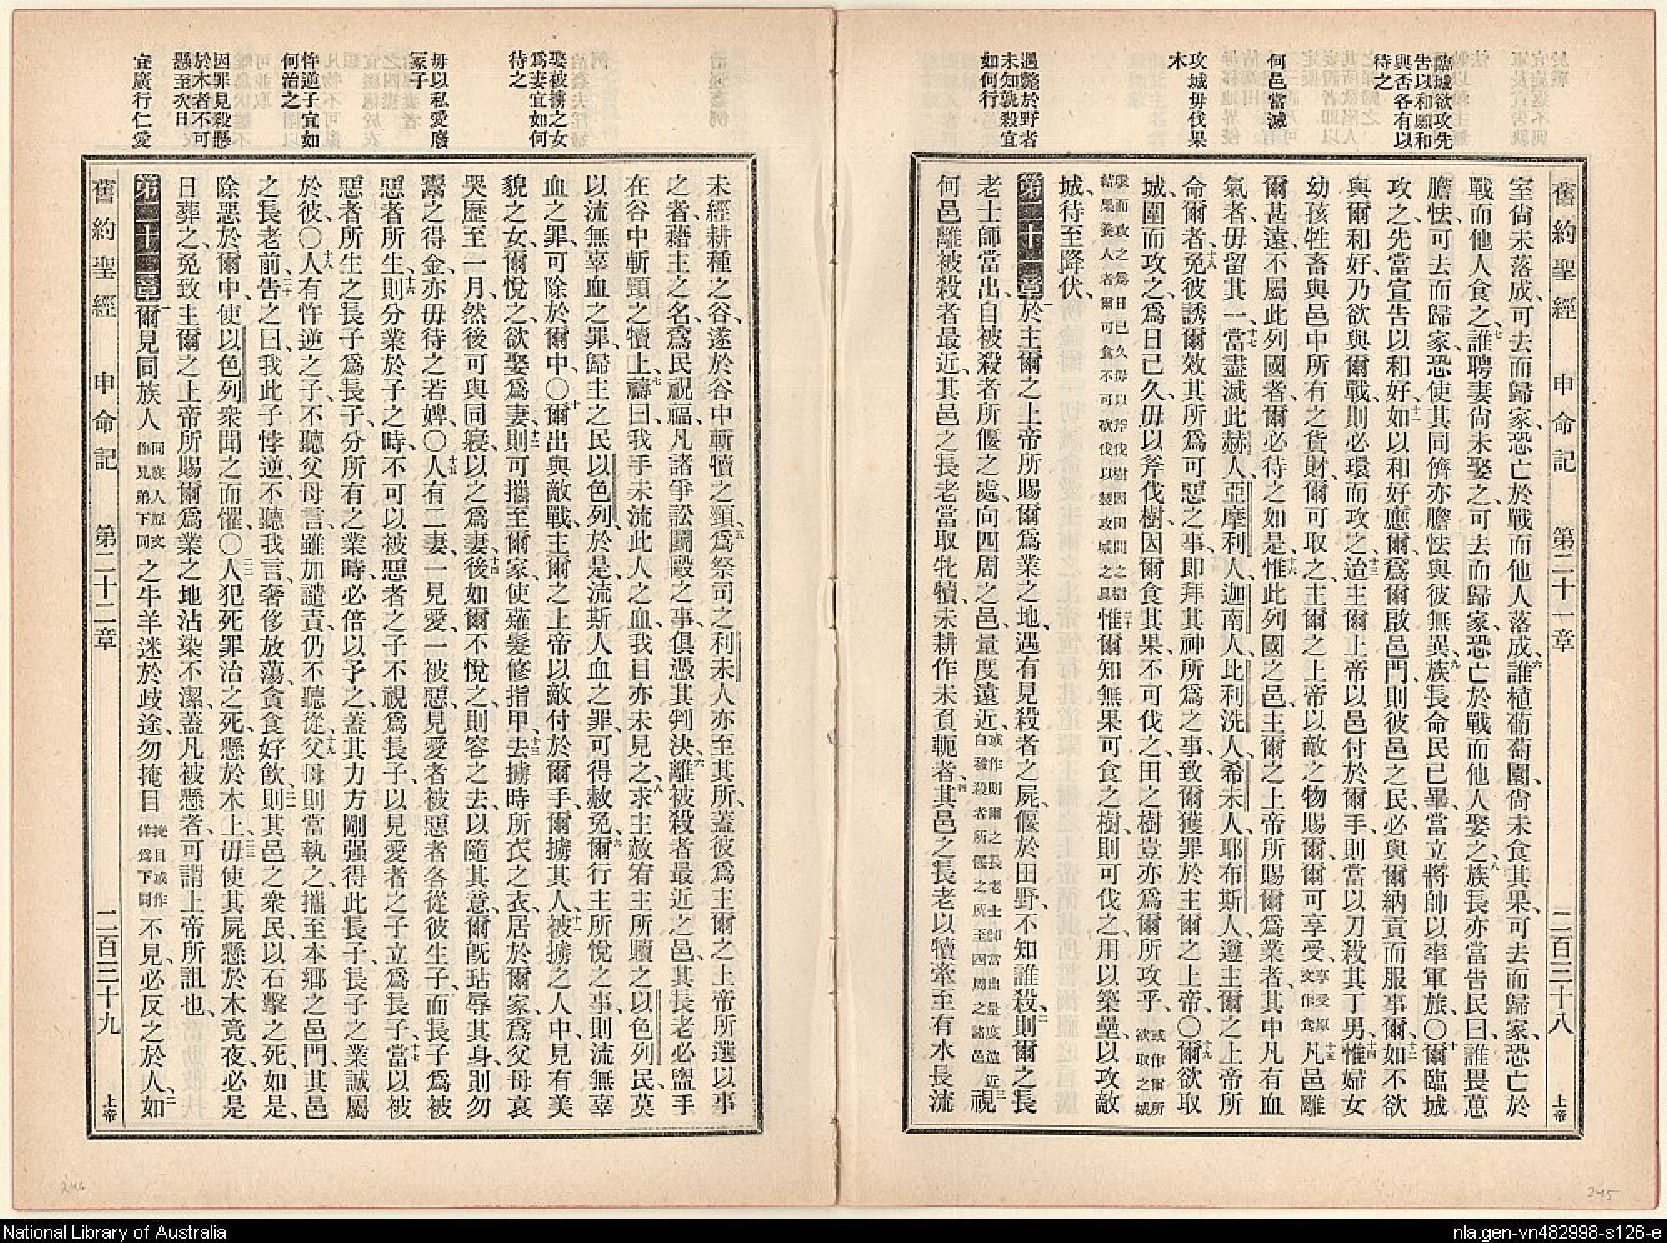 舊約聖經　申命記　第二十一章　二百三十八　上帝
臨城欲攻先
告以和願和
與否各有以
待之
何邑當滅
攻城毋伐果
木
遇斃於野者
未知孰殺宜
如何行
室尙未落成、可去而歸家、恐亡於戰而他人落成、六誰植葡萄園、尙未食其果、可去而歸家、恐亡於
戰而他人食之、七誰聘妻尙未娶之、可去而歸家、恐亡於戰而他人娶之、八族長亦當告民曰、誰畏葸
膽怯、可去而歸家、恐使其同儕亦膽怯與彼無異、九族長命民已畢、當立將帥以率軍旅、〇十爾臨城
攻之、先當宣告以和好、十一如以和好應爾、爲爾啟邑門、則彼邑之民、必與爾納貢而服事爾、十二如不欲
與爾和好、乃欲與爾戰、則必環而攻之、十三迨主爾上帝以邑付於爾手、則當以刀殺其丁男、十四惟婦女
幼孩牲畜、與邑中所有之貨財、爾可取之、主爾之上帝以敵之物賜爾、爾可享受、享受原文作食十五凡邑離
爾甚遠、不屬此列國者、爾必待之如是、十六惟此列國之邑、主爾之上帝所賜爾爲業者、其中凡有血
氣者、毋留其一、十七當盡滅此赫人、亞摩利人、迦南人、比利洗人、希未人、耶布斯人、遵主爾之上帝所
命爾者、十八免彼誘爾效其所爲可惡之事、卽拜其神所爲之事、致爾獲罪於主爾之上帝、〇十九爾欲取
城、圍而攻之、爲日已久、毋以斧伐樹、因爾食其果、不可伐之、田之樹豈亦爲爾所攻乎、或作爾所欲取之城
圍而攻之爲日已久毋以斧伐樹因田間之樹結果養人者爾可食不可砍伐以製攻城之具二十惟爾知無果可食之樹、則可伐之、用以築壘、以攻敵
城、待至降伏、
第二十一章　一於主爾之上帝所賜爾爲業之地、遇有見殺者之屍、偃於田野、不知誰殺、二則爾之長
老士師當出、自被殺者所偃之處、向四周之邑、量度遠近、或作則爾之長老士師當出量度遠近自被殺者所偃之所至四周之諸邑三視
何邑離被殺者最近、其邑之長老、當取牝犢、未耕作未負軛者、四其邑之長老以犢牽至有水長流
娶被擄之女
爲妻宜如何
待之
毋以私愛廢
冢子
悖逆子宜如
何治之
因罪見殺懸
於木者不可
懸至次日
宜廣行仁愛
未經耕種之谷、遂於谷中斬犢之頸、五爲祭司之利未人亦至其所、蓋彼爲主爾之上帝所選以事
之者、藉主之名、爲民祝福、凡諸爭訟鬭毆之事、俱憑其判決、六離被殺者最近之邑、其長老必盥手
在谷中斬頸之犢上、七禱曰、我手未流此人之血、我目亦未見之、八求主赦宥主所贖之以色列民、莫
以流無辜血之罪歸主之民以色列、於是流斯人血之罪、可得赦免、九爾行主所悅之事、則流無辜
血之罪、可除於爾中、〇十爾出與敵戰、主爾之上帝以敵付於爾手、爾擄其人、十一被擄之人中、見有美
貌之女、爾悅之、欲娶爲妻、十二則可攜至爾家、使薙髮修指甲、十三去擄時所衣之衣、居於爾家、爲父母哀
哭、歷至一月、然後可與同寢、以之爲妻、十四後如爾不悅之、則容之去、以隨其意、爾既玷辱其身、則勿
鬻之得金、亦毋待之若婢、〇十五人有二妻、一見愛、一被惡、見愛者被惡者各從彼生子、而長子爲被
惡者所生、十六則分業於子之時、不可以被惡者之子不視爲長子、以見愛者之子立爲長子、十七當以被
惡者所生之長子爲長子、分所有之業時、必倍以予之、蓋其力方剛强、得此長子、長子之業誠屬
於彼、〇十八人有忤逆之子、不聽父母言、雖加譴責、仍不聽從、十九父母則當執之、攜至本鄉之邑門、其邑
之長老前、二十告之曰、我此子悖逆、不聽我言、奢侈放蕩、貪食好飲、二一則其邑之衆民、以石擊之死、如是、
除惡於爾中、使以色列衆聞之而懼、〇二二人犯死罪治之死、懸於木上、二三毋使其屍懸於木竟夜、必是
日葬之、免致主爾之上帝所賜爾爲業之地沾染不潔、蓋凡被懸者、可謂上帝所詛也、
第二十二章　一爾見同族人同族人原文作兄弟下同之牛羊、迷於歧途、勿掩目掩目或作佯爲下同不見、必反之於人、二如
舊約聖經　申命記　第二十二章　二百三十九　上帝
246
245
National Library of Australia
nla.gen-vn482998-s126-e